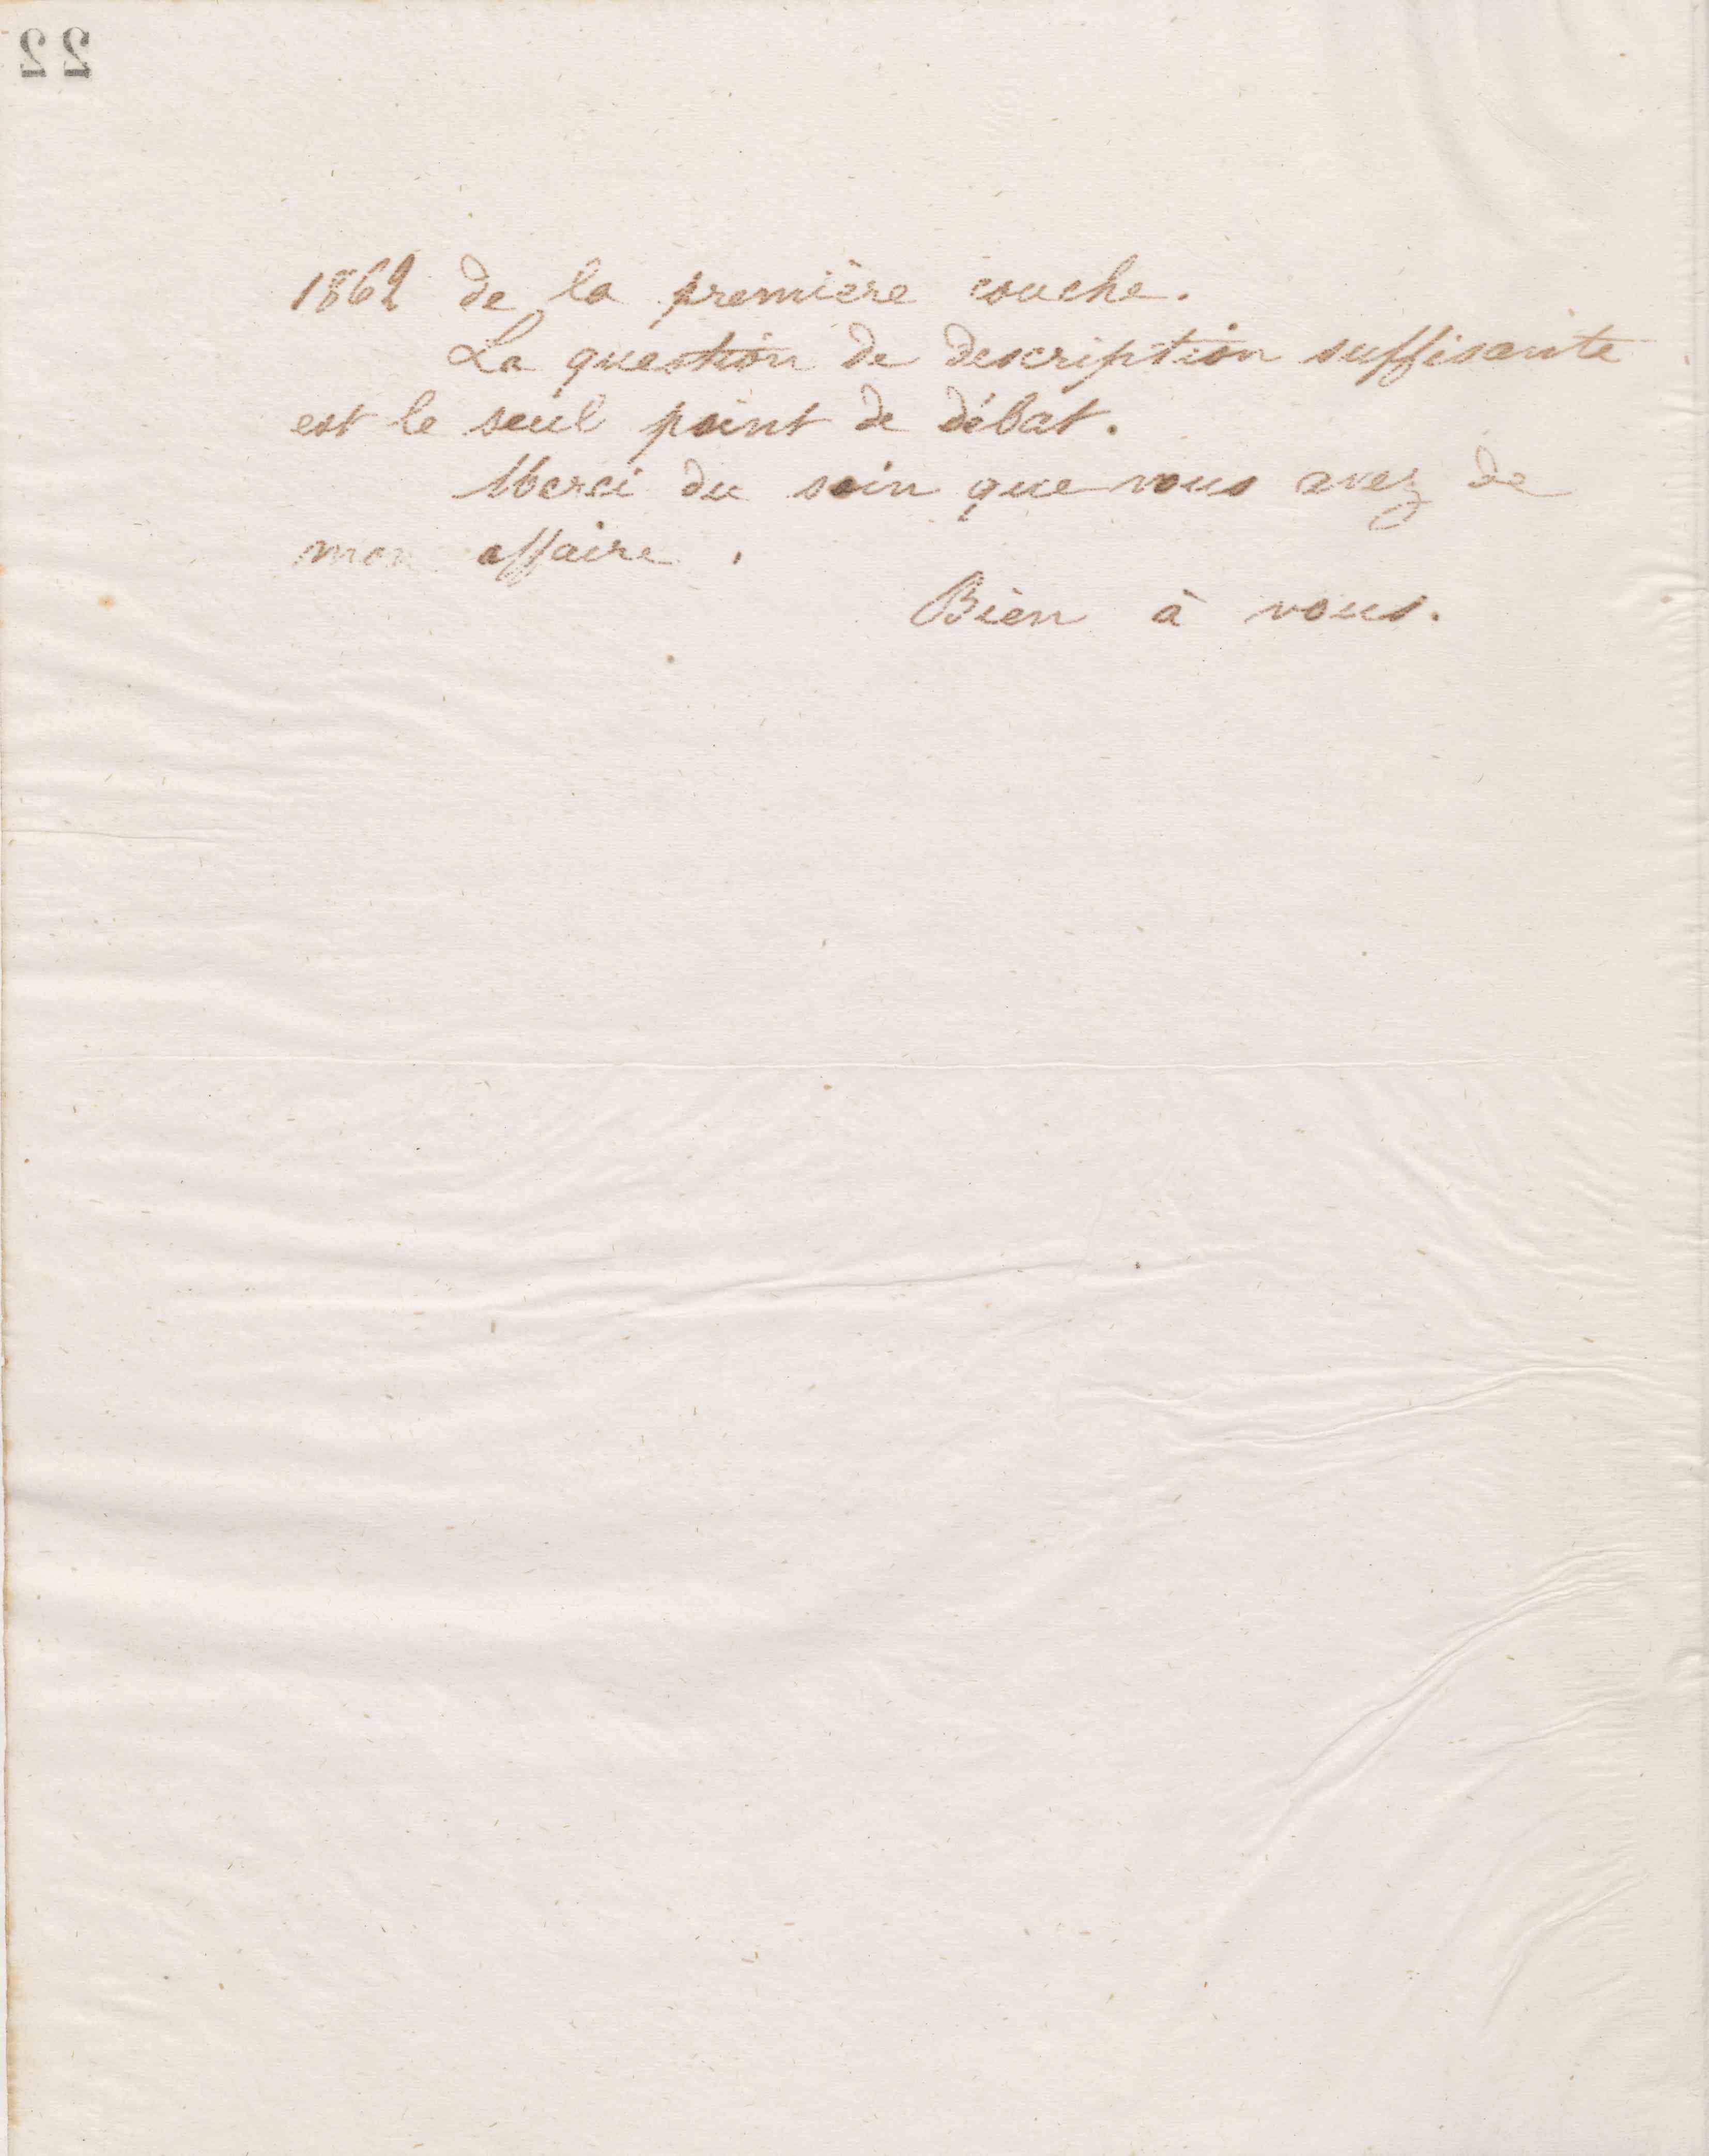 22
1862 de la première couche.
La question de description suffisante
est le seul point de débat.
Merci du soin que vous avez de
mon affaire.
Bien à vous.